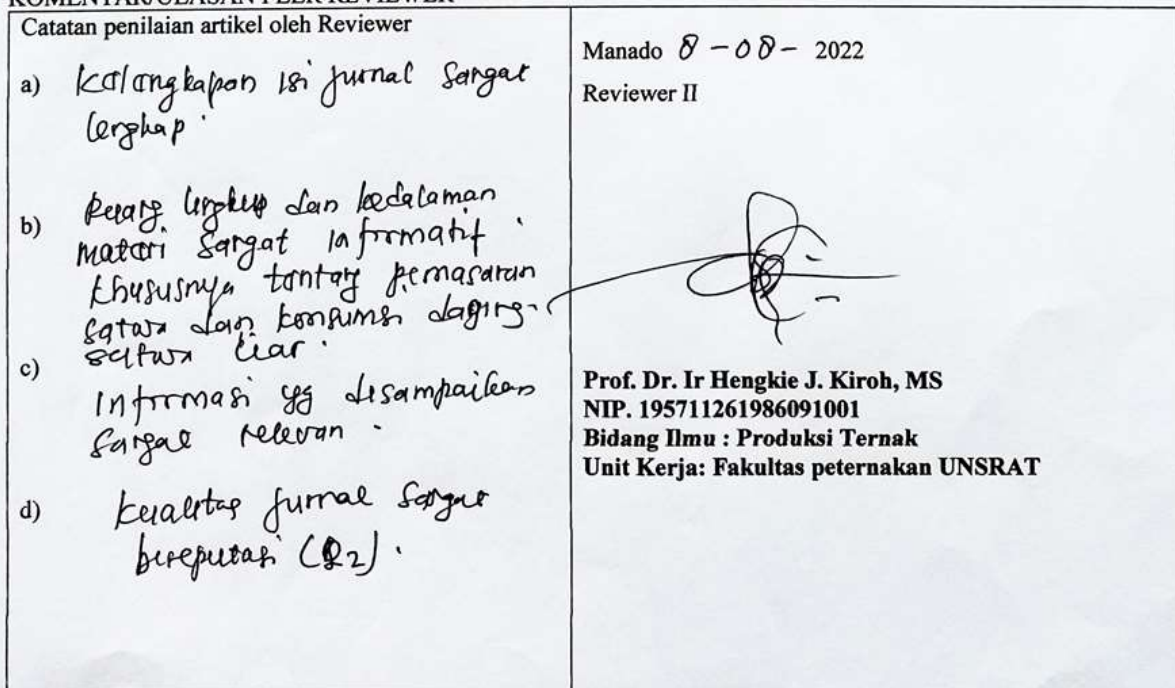 KOMENTAR/ULASAN PEER REVIEWER
Catatan penilaian artikel oleh Reviewer
a) Kelengkapan isi jurnal sangat
lengkap.
b) Ruang lingkup dan kedalaman
materi sangat informatif.
khususnya tentang pemasaran
satwa dan konsumsi daging
satwa liar.
c) Informasi yg disampaikan
sangat relevan.
d) kualitas jurnal sangat
bereputasi (Q2).
Manado 8 - 08 - 2022
Reviewer II
Prof. Dr. Ir Hengkie J. Kiroh, MS
NIP. 195711261986091001
Bidang Ilmu : Produksi Ternak
Unit Kerja: Fakultas peternakan UNSRAT